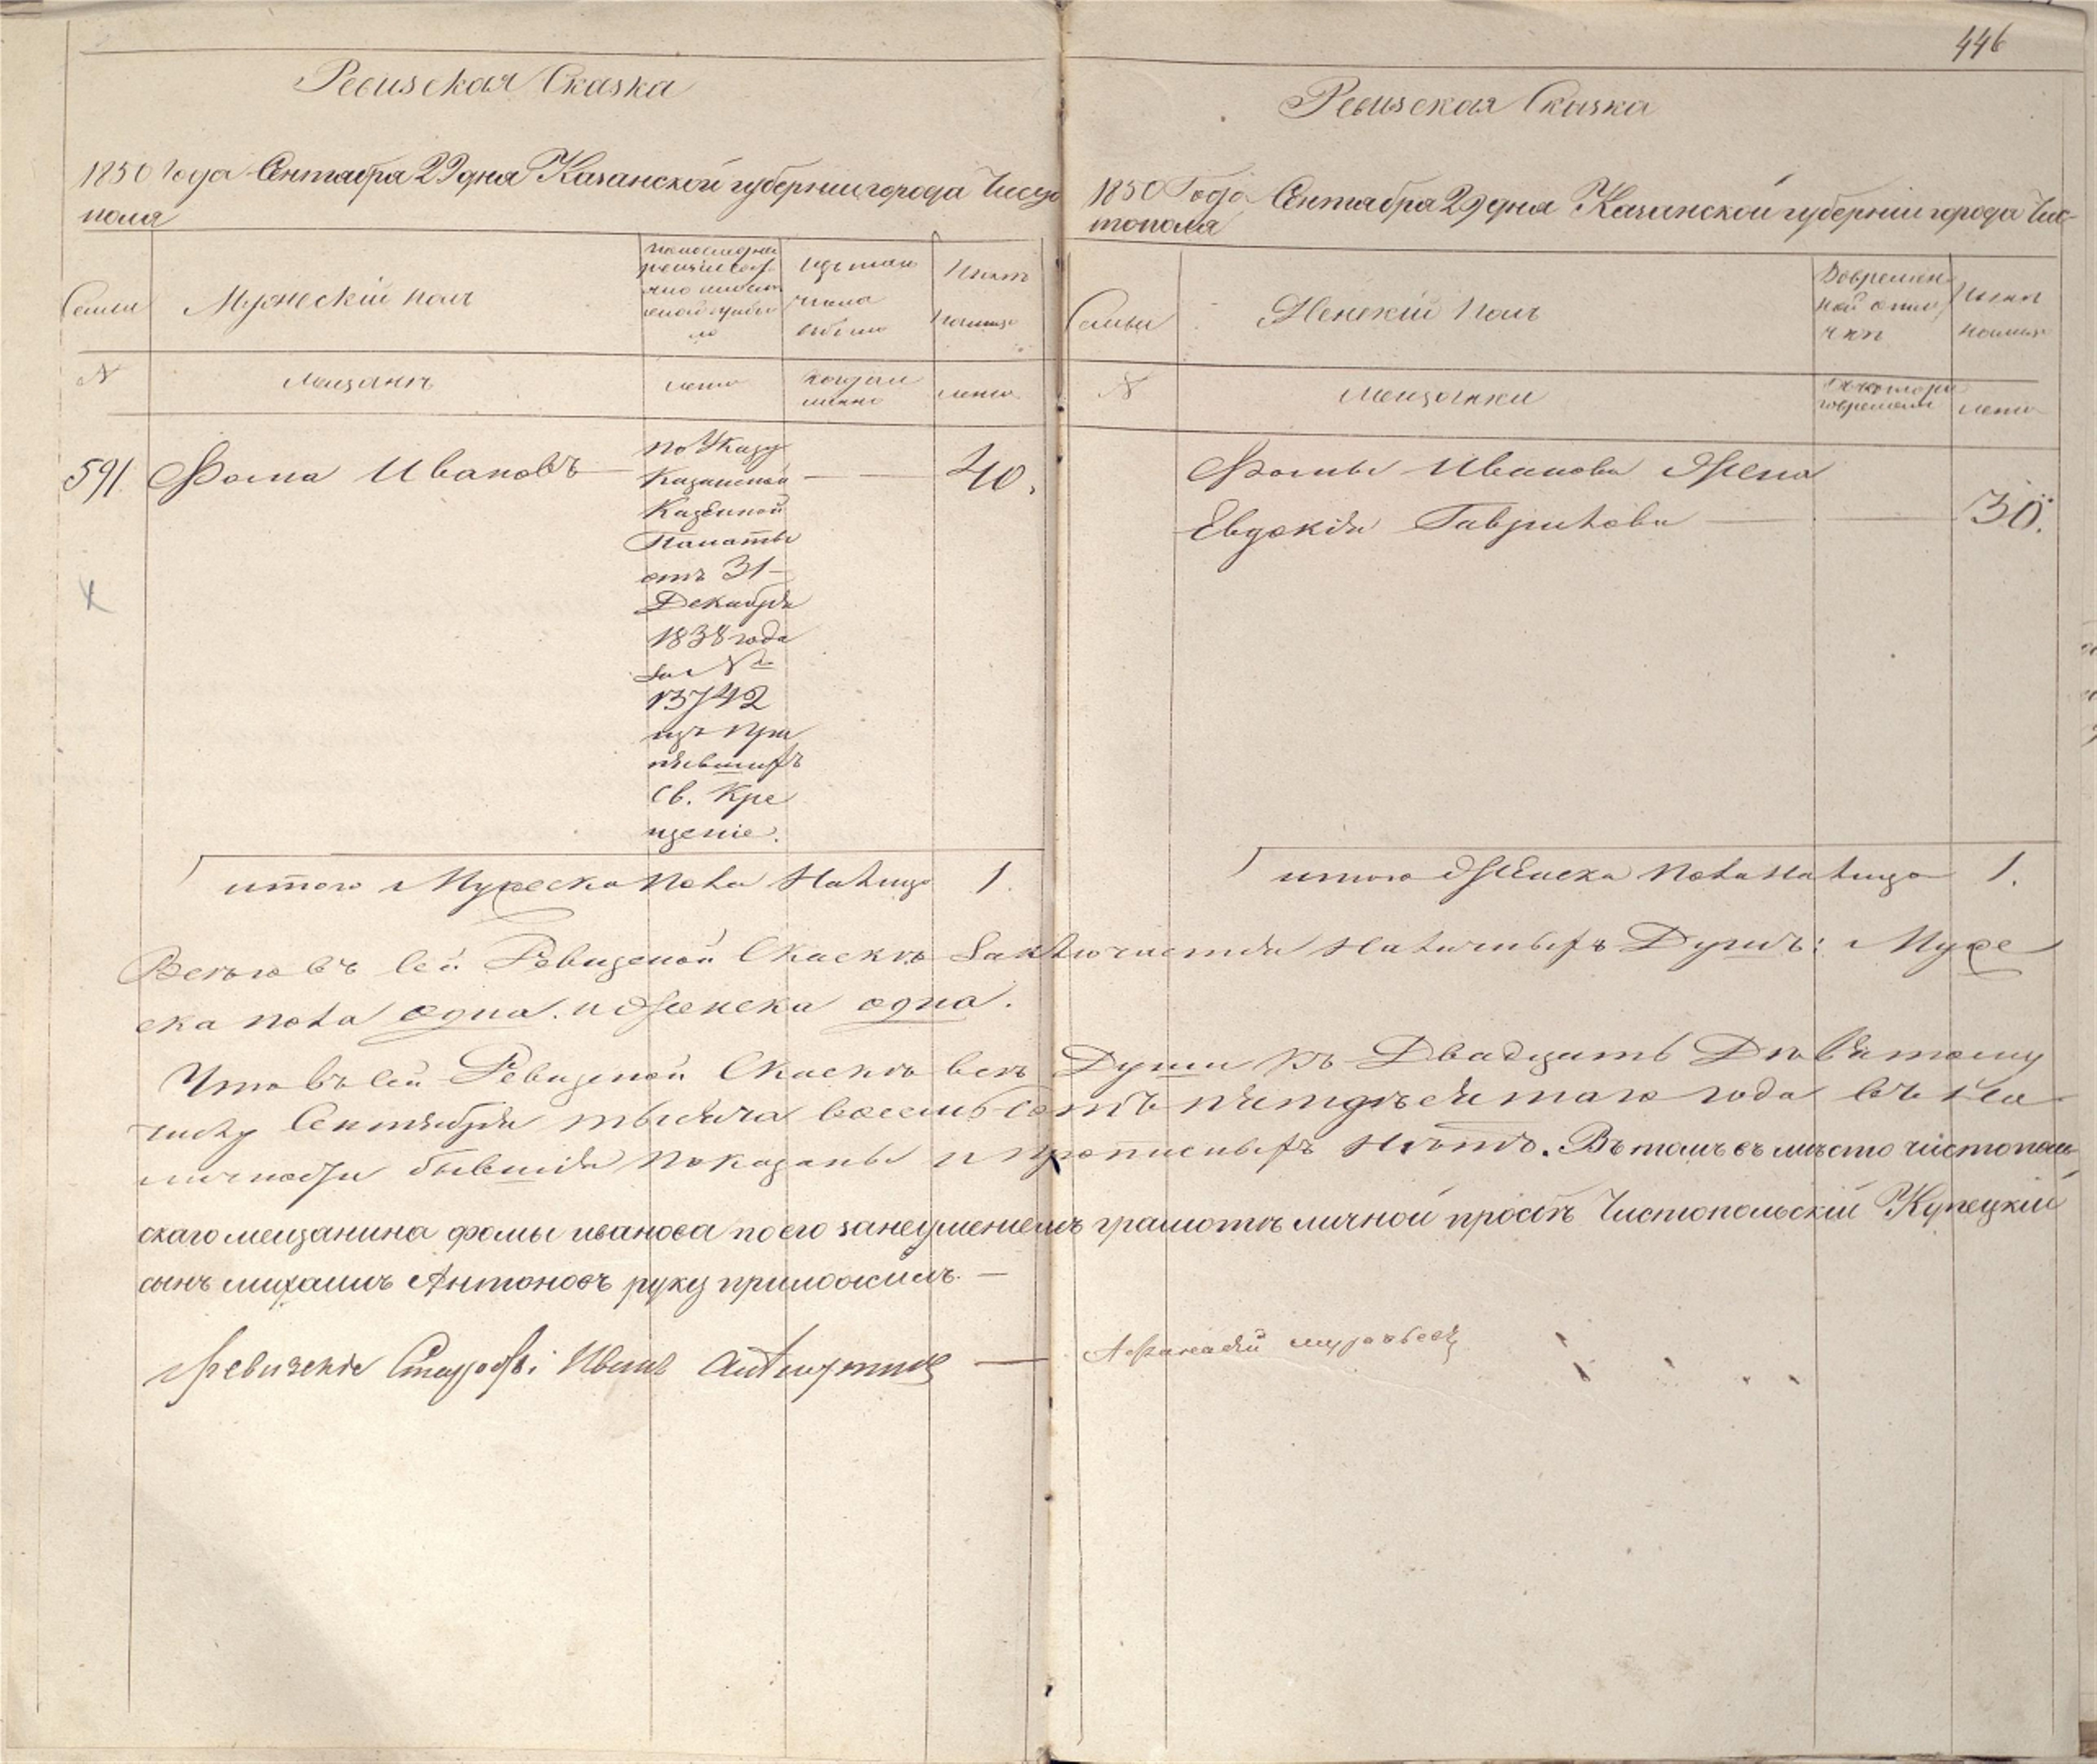 446
Ревизская Сказка
1850 Года Сентабра 29 дня Казанской губернии города Чисто
поля
Семьи
Мужескій полъ
Изъ того
числа
выбыло
Нынѣ
налицо
N
мещанъ
лета
когда и
лета
591. Фома Ивановъ — — 40.
по Указу
Казанской
Казенной
Палаты
отъ 31
Декабря
1838 года
за №
13742
изъ при
нявшихъ
Св. Кре
щеніе.
итого Мужеска пола налицо 1.
Ревизская Сказка
1850 Года Сентабра 29 дня Казанской губерніи города Чис-
тополя
Семьи
Женскій полъ
Вовремен
ной отлу
чки
Нынѣ
налицо
N
мещанки
лета
Фомы Иванова Жена
Евдокія Гаврилова — — 30.
итого Женска пола налицо 1.
Всего въ сей Ревизской Скаскѣ заключается наличныхъ Душъ: Муже
ска пола одна. и Женска одна.
Что въ сей Ревизской Скаскѣ всѣ Души къ Двадцать Девятому
числу Сентября тысяча восемь сотъ пятдѣсятаго года въ на
личности бывшія показаны и прописныхъ нѣтъ. Въ томъ въ мѣсто чистополь-
скаго мещанина фомы иванова по его занеумениемъ грамотѣ личной прозбѣ Чистопольскій Купецкій
сынъ михаилъ Антоновъ руку приложилъ. —
Иванъ
Афанасей